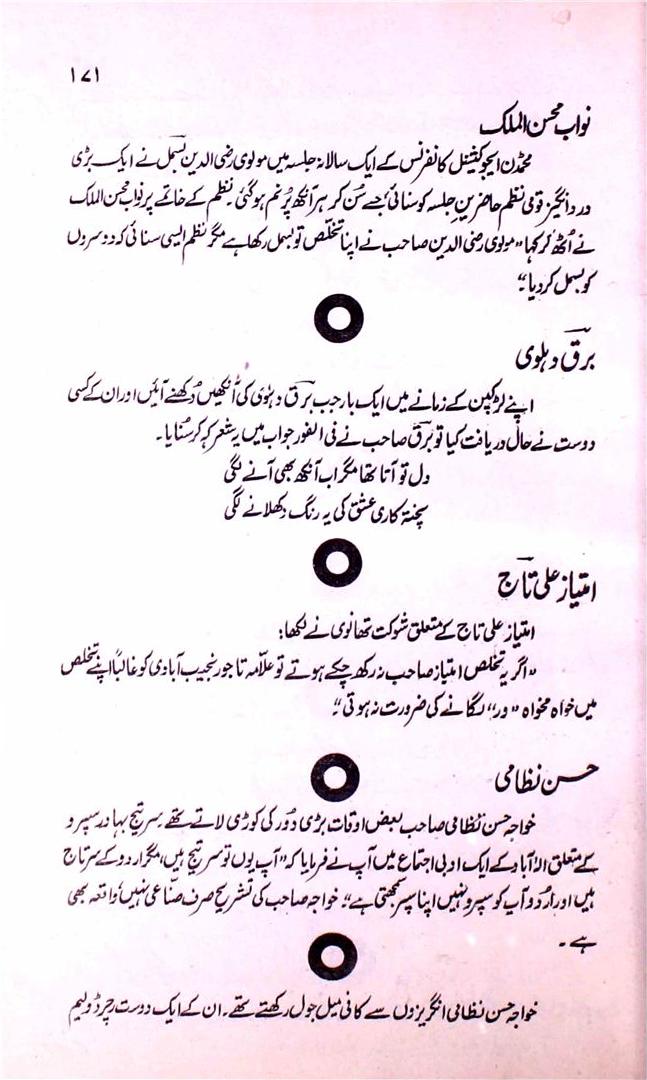 ۱۷۱
نواب محسن الملک
محمڈن ایجوکیشنل کانفرنس کے ایک سالانہ جلسہ میں مولوی رضی الدین بسمل نے ایک بڑی
درد انگیز قومی نظم حاضرینِ جلسہ کو سنائی جسے سُن کر ہر آنکھ پُرنم ہوگئی۔ نظم کے خاتمے پر نواب محسن الملک
نے اُٹھ کر کہا "مولوی رضی الدین صاحب نے اپنا تخلّص تو بسمل رکھا ہے مگر نظم ایسی سنائی کہ دوسروں
کو بسمل کر دیا"۔
برق دہلوی
اپنے لڑکپن کے زمانے میں ایک بار جب برق دہلوی کی آنکھیں دُکھنے آئیں اور ان کے کسی
دوست نے حال دریافت کیا تو برق صاحب نے فی الفور جواب میں یہ شعر کہہ کر سُنایا۔
دل تو آتا تھا مگر اب آنکھ بھی آنے لگی
پختہ کاری عشق کی یہ رنگ دکھلانے لگی
امتیاز علی تاج
امتیاز علی تاج کے متعلق شوکت تھانوی نے لکھا:
"اگر یہ تخلص امتیاز صاحب نہ رکھ چکے ہوتے تو علّامہ تاجور نجیب آبادی کو غالباً اپنے تخلص
میں خواہ مخواہ "ور" لگانے کی ضرورت نہ ہوتی"۔
حسن نظامی
خواجہ حسن نظامی صاحب بعض اوقات بڑی دُور کی کوڑی لاتے تھے۔ سر تیج بہادر سپرو
کے متعلق الہ آباد کے ایک ادبی اجتماع میں آپ نے فرمایا کہ "آپ یوں تو سر تیج ہیں، مگر اردو کے سرتاج
ہیں اور اُردو آپ کو سپرو نہیں اپنا سپر سمجھتی ہے"۔ خواجہ صاحب کی تشریح صرف صنّاعی نہیں، واقعہ بھی
ہے۔
خواجہ حسن نظامی انگریزوں سے کافی میل جول رکھتے تھے۔ ان کے ایک دوست رچرڈ ولیم